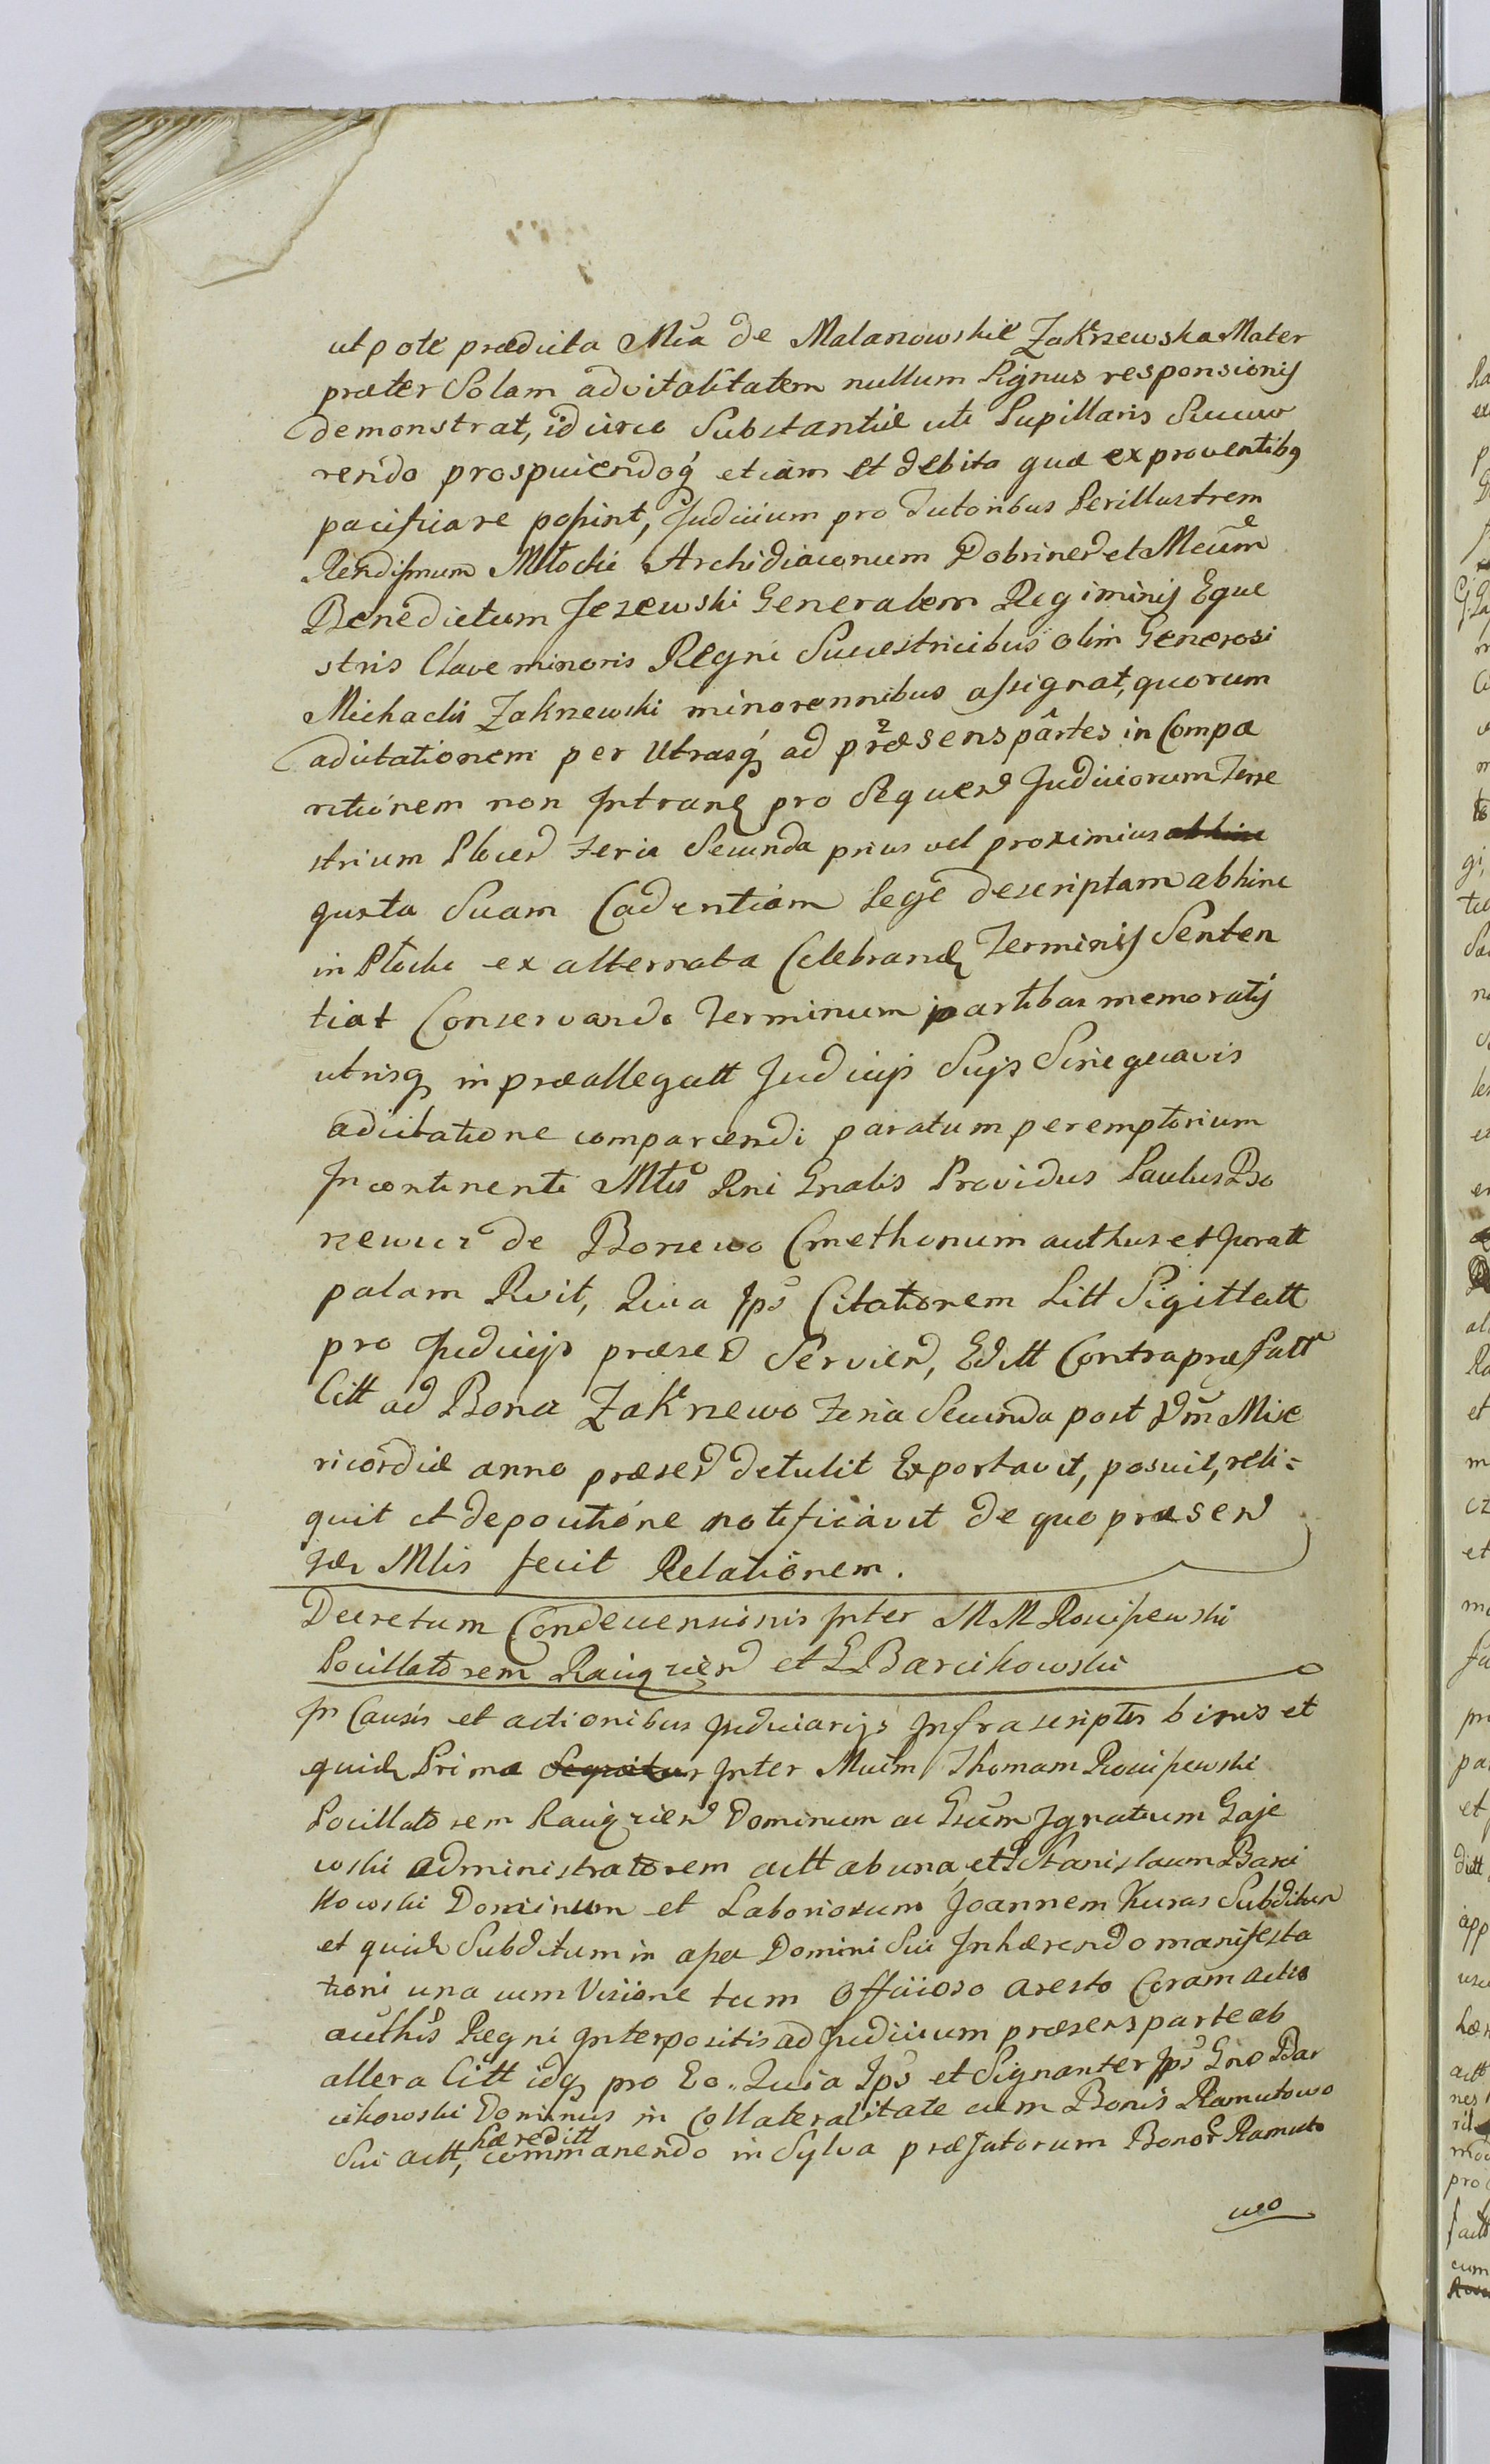 utpote prædicta Mca de Malanowskie Zakrzewska Mater
præter Solam advitalitatem nullum Pignus responsionis
demonstrat, idcirco Substantiæ uti Pupillaris Succur
rendo prospiciendoq etiam et debita quæ ex proventibq
pacificare possint, Judicium pro Tutoribus Perillustrem
Rendissmum Młocki Archidiaconum Dobrinen et Mcum
Benedictum Jezewski Generalem Regiminis Eque
stris Clavæ minoris Regni Successtricibus olim Generosi
Michaelis Zakrzewski minorennibus assignat, quorum
adcitationem per Utrasq ad præsens partes in Compa
ritionem non Intrand pro Sequen Judiciorum Terre
strium Plocen Feria Secunda prius vel proximius abhinc
quxta Suam Cadentiam Lege descriptam abhinc
in Płocko ex alternata Celebrand Terminis Senten
tiat Conservando Terminum partibus memoratis
utrisq in præallegatt Judicijs Suis Sine quavis
adcitatione comparendi paratum peremptorium
In continenti Mtis Rni Gnalis Providus Paulus Bo
rzewicz de Borzewo Cmethonum authus et Juratt
palam Rvit, Quia Ips Citationem Litt Sigittatt
pro Judicijs præsen Servien, Editt Contra præfatt
Citt ad Bona Zakrzewo Feria Secunda post Dm Mise
ricordiæ anno præsen detulit Exportavit, posuit, reli=
quit et de positione notificavit de quo præsen
Mtis fecit Relationem.
Decretum Condescensionis Inter MM Rościszewski
Pocillatorem Raciązien et G Barcikowski
In Causis et actionibus Judiciarijs Infrascriptis binis et
quid Prima Sequitur Inter Mcum Thomam Rościszewski
Pocillatorem Raciązien Dominum ac Gsum Ignatium Gaje
wski administratorem actt ab una, et Stanislaum Barci
kowski Dominum et Laboriosum Joannem Kuras Subditum
et quid Subditum in assa Domini Sui Inhærendo manifesta
tioni una cum Visione tum Officioso aresto Coram actis
authis Regni Interpositis ad Judicium præsens parte ab
altera Citt idq pro Eo. Quia Ips et Signanter Ips Gno Bar
cikowski Dominus in Collateralitate cum Bonis Ramutowo
hæreditt
Sui actt, commanendo in Sylva præfatorum Bonor Ramuto
wo